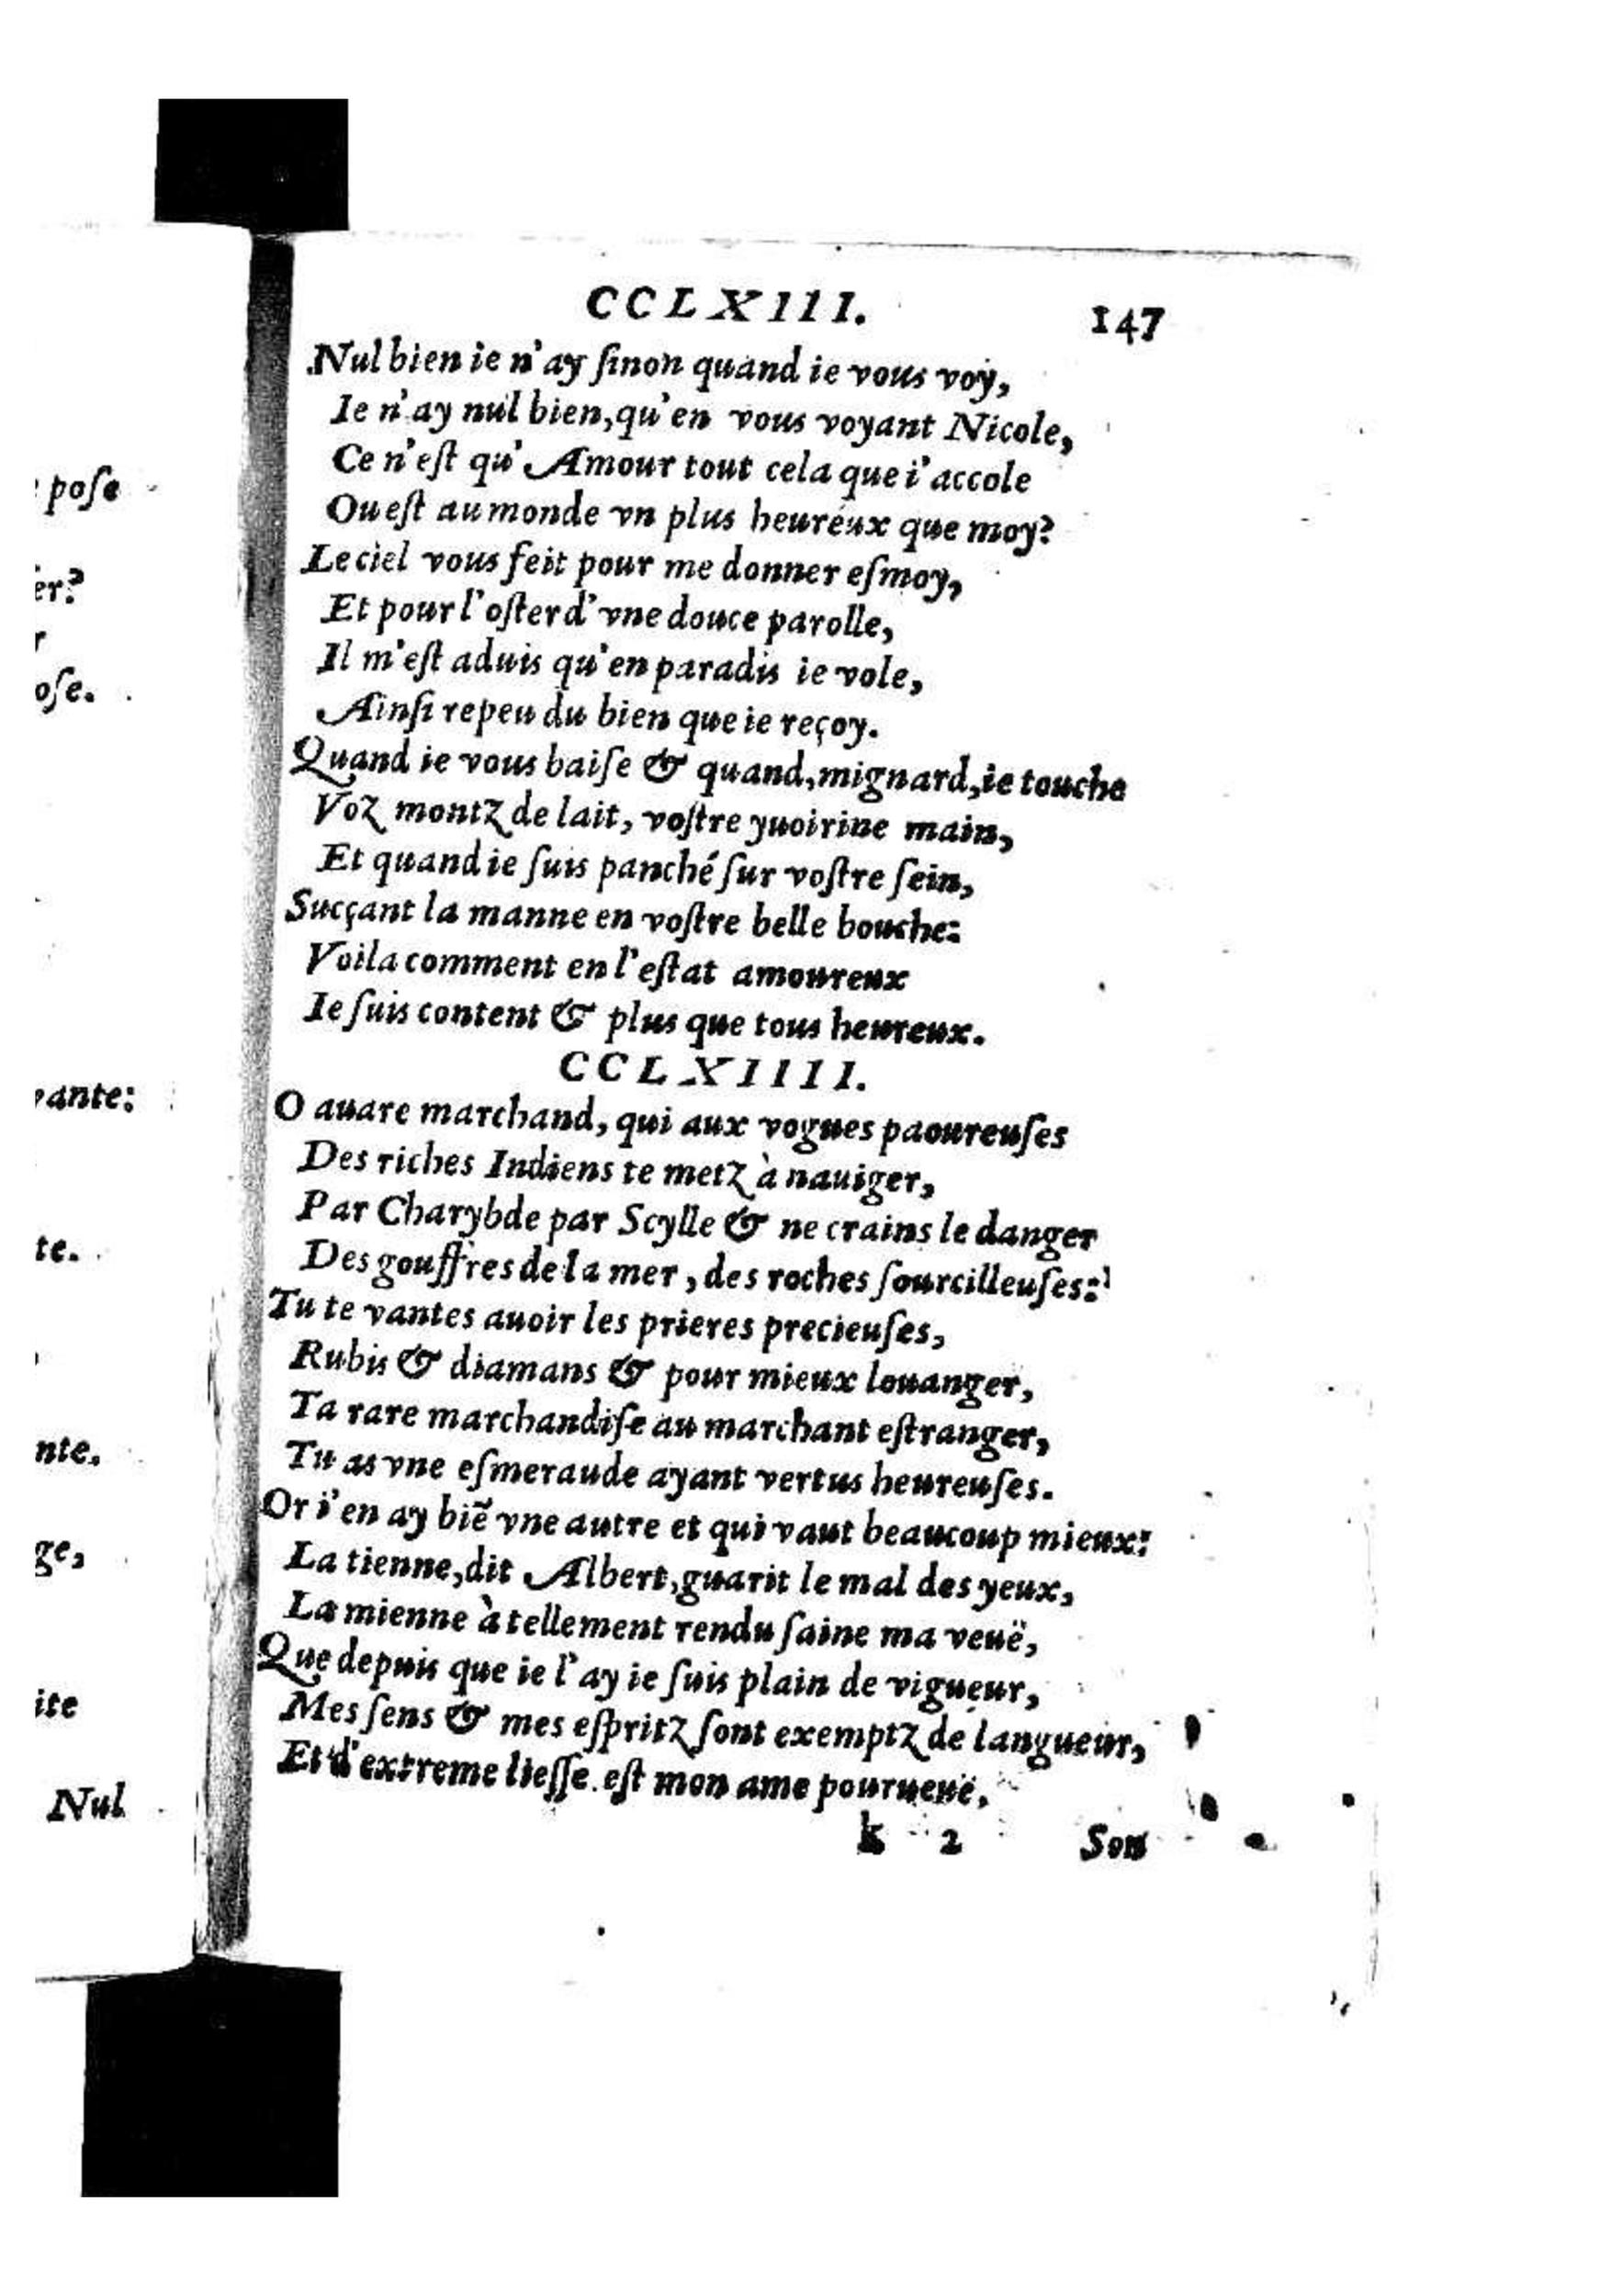 CCLXIII. 147
Nul bien ie n'ay ſinon quand ie vous voy,
Ie n'ay nul bien, qu'en vous voyant Nicole,
Ce n'eſt qu'Amour tout cela que i'accole
Ou eſt au monde vn plus heureux que moy?
Le ciel vous feit pour me donner eſmoy,
Et pour l'oſter d'vne douce parolle,
Il m'eſt aduis qu'en paradis ie vole,
Ainſi repeu du bien que ie reçoy.
Quand ie vous baiſe & quand, mignard, ie touche
Voz montz de lait, voſtre yuoirine main,
Et quand ie ſuis panché ſur voſtre ſein,
Sucçant la manne en voſtre belle bouche:
Voila comment en l'eſtat amoureux
Ie ſuis content & plus que tous heureux.
CCLXIIII.
O auare marchand, qui aux vogues paoureuſes
Des riches Indiens te metz à nauiger,
Par Charybde par Scylle & ne crains le danger
Des gouffres de la mer, des roches ſourcilleuſes:
Tu te vantes auoir les prieres precieuſes,
Rubis & diamans & pour mieux louanger,
Ta rare marchandiſe au marchant eſtranger,
Tu as vne eſmeraude ayant vertus heureuſes.
Or i'en ay biẽ vne autre et qui vaut beaucoup mieux:
La tienne, dit Albert, guarit le mal des yeux,
La mienne à tellement rendu ſaine ma veuë,
Que depuis que ie l'ay ie ſuis plain de vigueur,
Mes ſens & mes eſpritz ſont exemptz de langueur,
Et d'extreme lieſſe eſt mon ame pourueuë,
k 2 Son
poſe
er?
r
oſe.
vante:
te.
nte.
ge,
ite
Nul